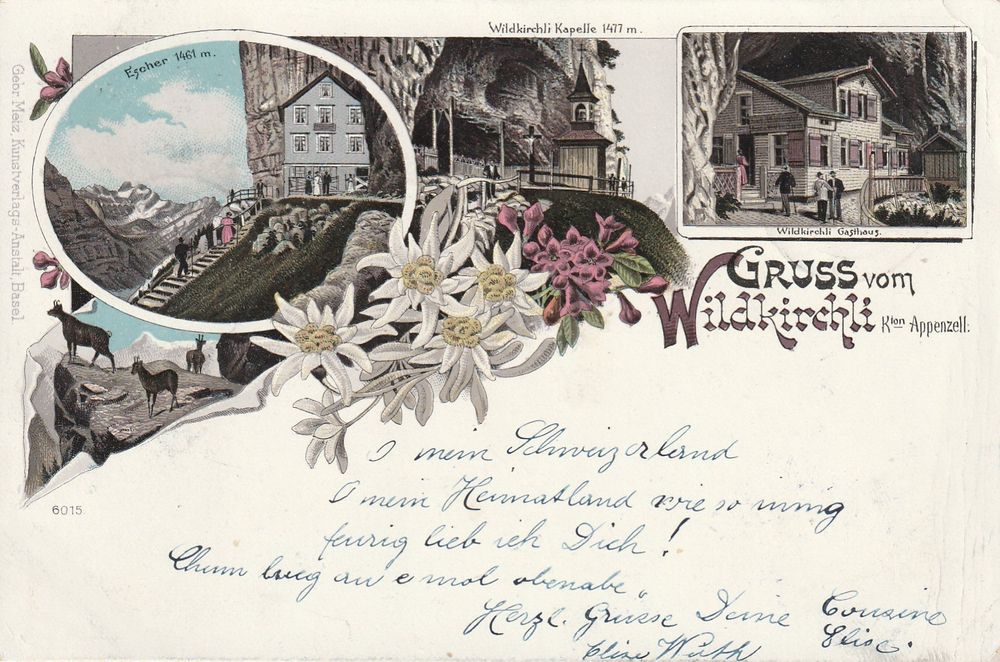 Wildkirchli Kapelle 1477 m.
Escher 1461 m.
Wildkirchli Gasthaus.
Gebr. Metz, Kunstverlags-Anstalt, Basel
GRUSS vom
Wildkirchli Kton Appenzell.
6015.
O mein Schweizerland
O mein Heimatland wie so innig
feurig lieb ich Dich!
Chum lueg au e mol obenabe"
Herzl. Grüsse Deine Cousine
Elise.
Elise Wüth